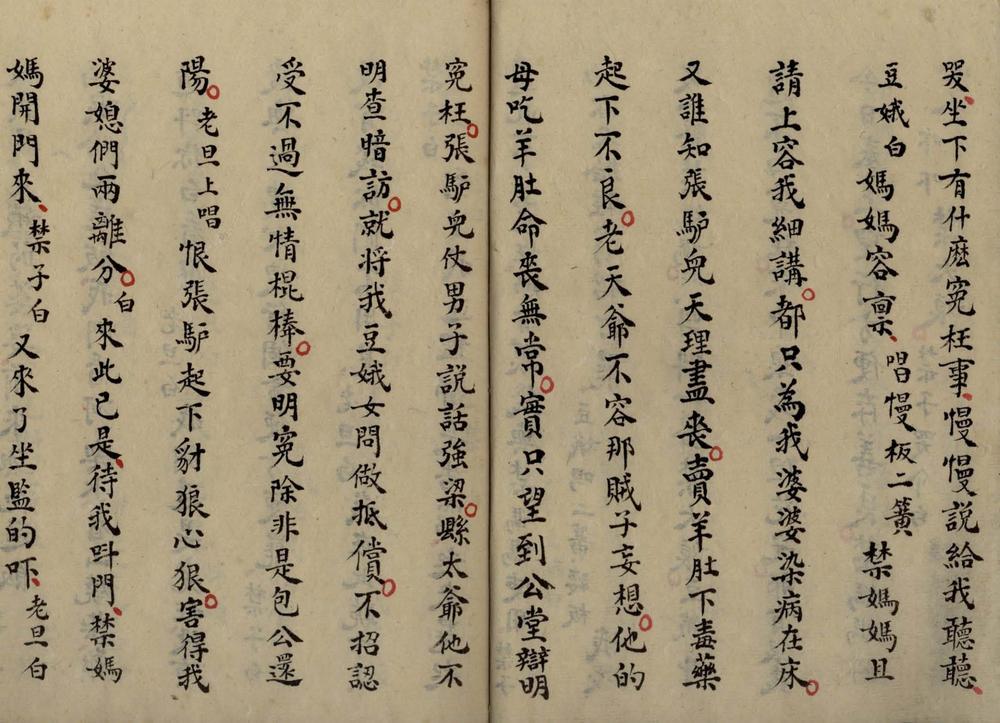 哭、坐下有什麽寃枉事、慢慢說給我聽聽、
豆娥白 媽媽容禀、唱慢板二簧 禁媽媽且
請上容我細講○都只為我婆婆染病在床○
又誰知張馿兒天理盡丧○賣羊肚下毒藥
起下不良○老天爺不容那賊子妄想○他的
母吃羊肚命丧無常○實只望到公堂辯明
寃枉○張馿兒仗男子說話強梁○縣太爺他不
明查暗訪○就将我豆娥女問做抵償○不招認
受不過無情棍棒○要明寃除非是包公還
陽○老旦上唱 恨張馿起下豺狼心狠○害得我
婆媳們兩離分○白 來此已是、待我呌門、禁媽
媽開門來、禁子白 又來了坐監的吓、老旦白